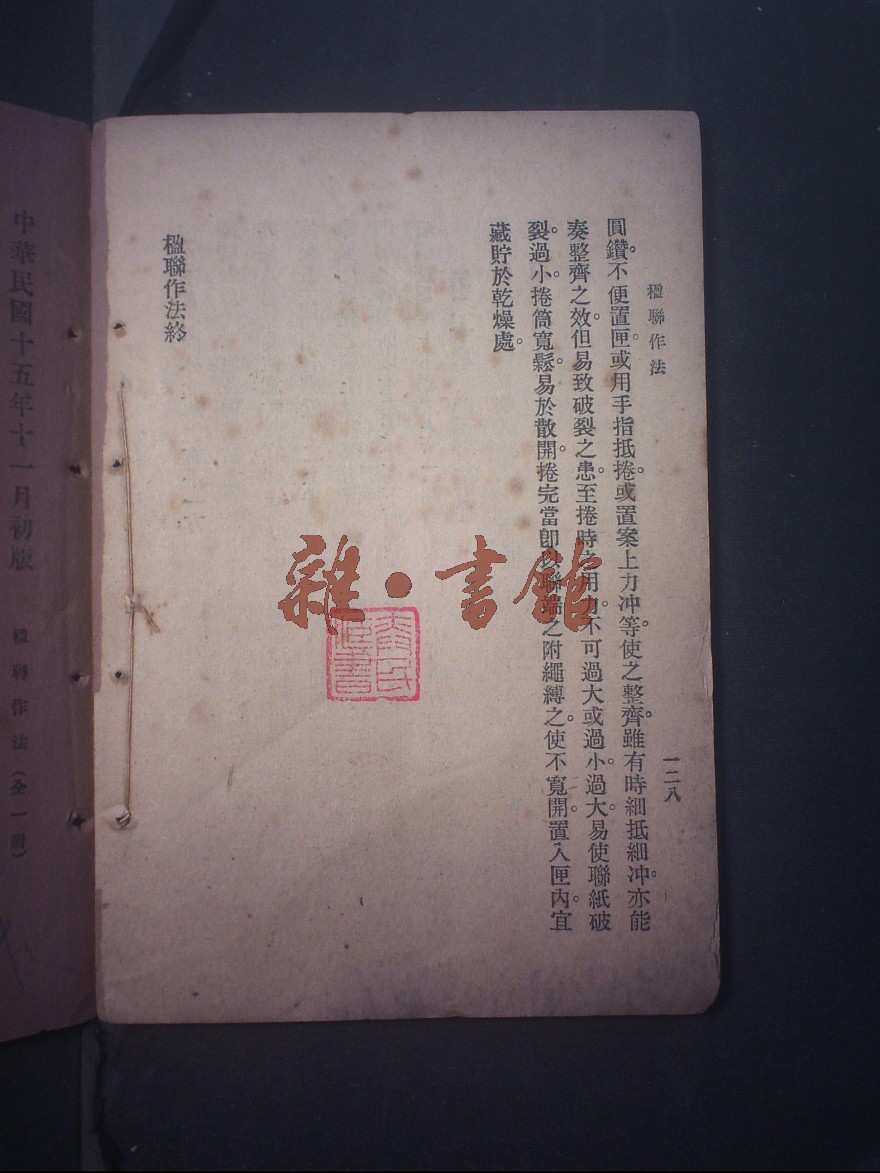 楹聯作法
一二八
圓鑽。不便置匣。或用手指抵捲。或置案上力冲等。使之整齊。雖有時細抵細冲。亦能
奏整齊之效。但易致破裂之患。至捲時之用力。不可過大或過小。過大。易使聯紙破
裂。過小。捲筒寬鬆。易於散開。捲完當卽以聯端之附繩縛之。使不寬開。置入匣內。宜
藏貯於乾燥處。
楹聯作法終
雜·書館
中華民國十五年十一月初版
楹聯作法（全一册）